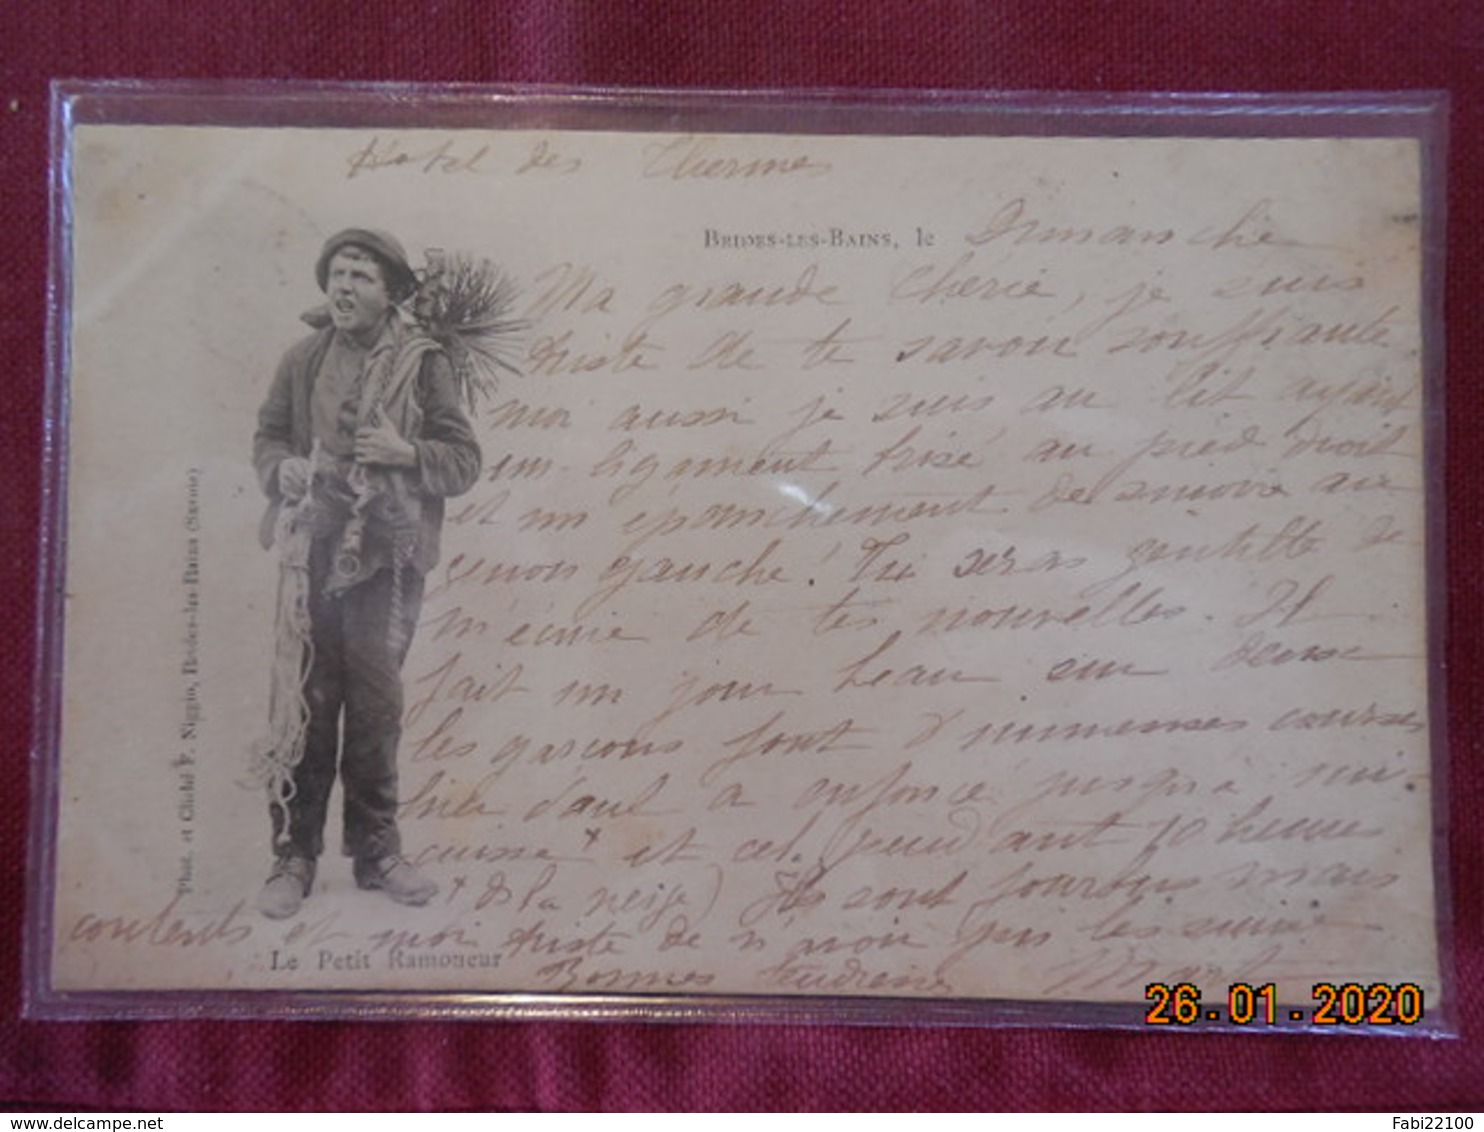 Hotel des Thermes
BRIDES-LES-BAINS, le Dimanche
Ma grande Chérie, je suis
triste de te savoir souffrante
moi aussi je suis au lit ayant
un ligament brisé au pied droit
et un épanchement de sinovie au
genou gauche! Tu seras gentille de
m'écrire de tes nouvelles. Il
fait un jour beau sur deux
les garcons font d'immenses courses
hier Paul a enfoncé jusqu'à mi-
cuisse + et cel. pendant 10 heures
+ de la neige) Ils sont fourbus mais
contents et moi triste de n'avoir pu les suivre
Bonnes tendresses
Le Petit Ramoneur
Phot. et Cliché F. Niggio, Brides-les-Bains (Savoie)
26.01.2020
delcampe.net
Fabi22100